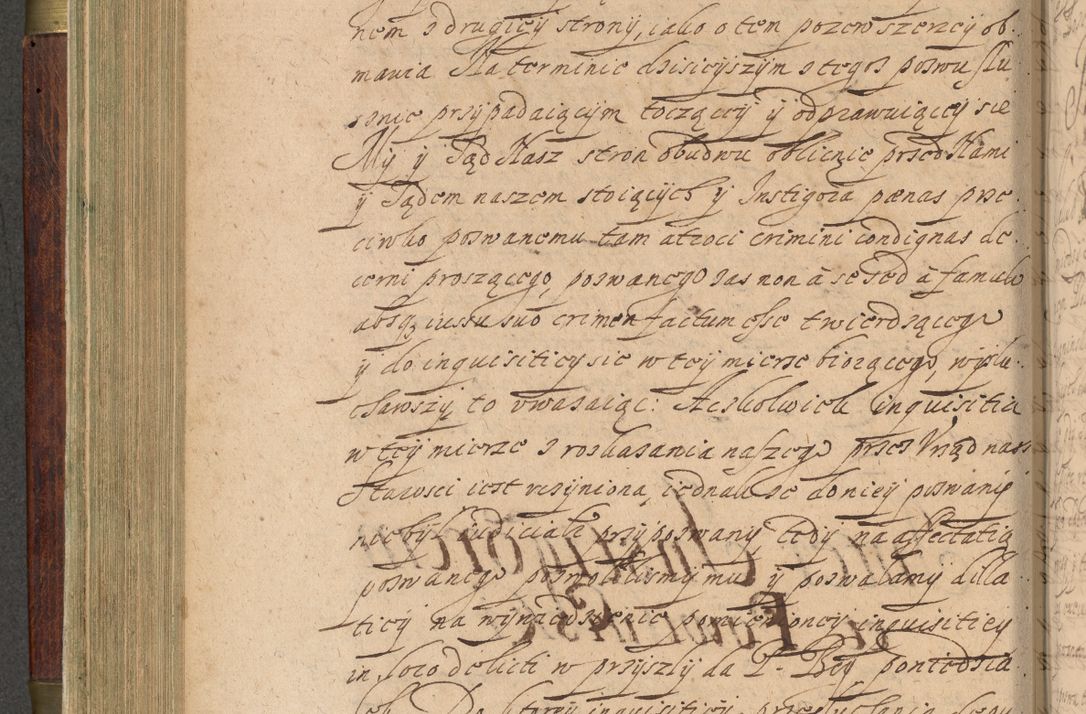 nem z drugiey strony, iako o tem pozew szerzey ob
mawia Na terminie dzisieyszym z tegoż pozwu słu
sznie przypadaiącym toczącey y odprawuiącey sie
My y Sąd Nasz stron obudwu oblicznie przed Nami
y Sądem naszem stoiących y Instigora pænas prze
ciwko pozwanemu tam atroci crimini condignas de
cerni proszącego, pozwanego zas non à se sed à famulo
absq; iussu suo crimen factum esse twierdzącego
y do inquisitiey sie w tey mierze biorącego, wysłu
chawszy, to uwazaiąc: Acz kolwiek inquisitia
w tey mierze z roskazania naszego przez Urząd nasz
Starosci iest uczyniona, iednak ze do niey pozwany
nie był iudicialr przypozwany tedy na affectatią
pozwanego pozwolilismy mu y pozwalamy dilla
ticy na wywiedzenie pomienioney inquisitiey
in loco delicti w przyszły da P. Bog poniedzia
łek Do ktorey inquisitiey